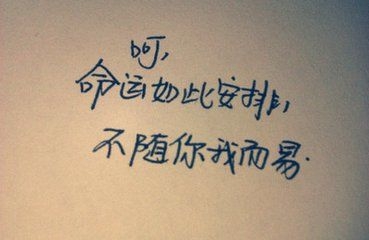 呵,
命运如此安排,
不随你我而易.